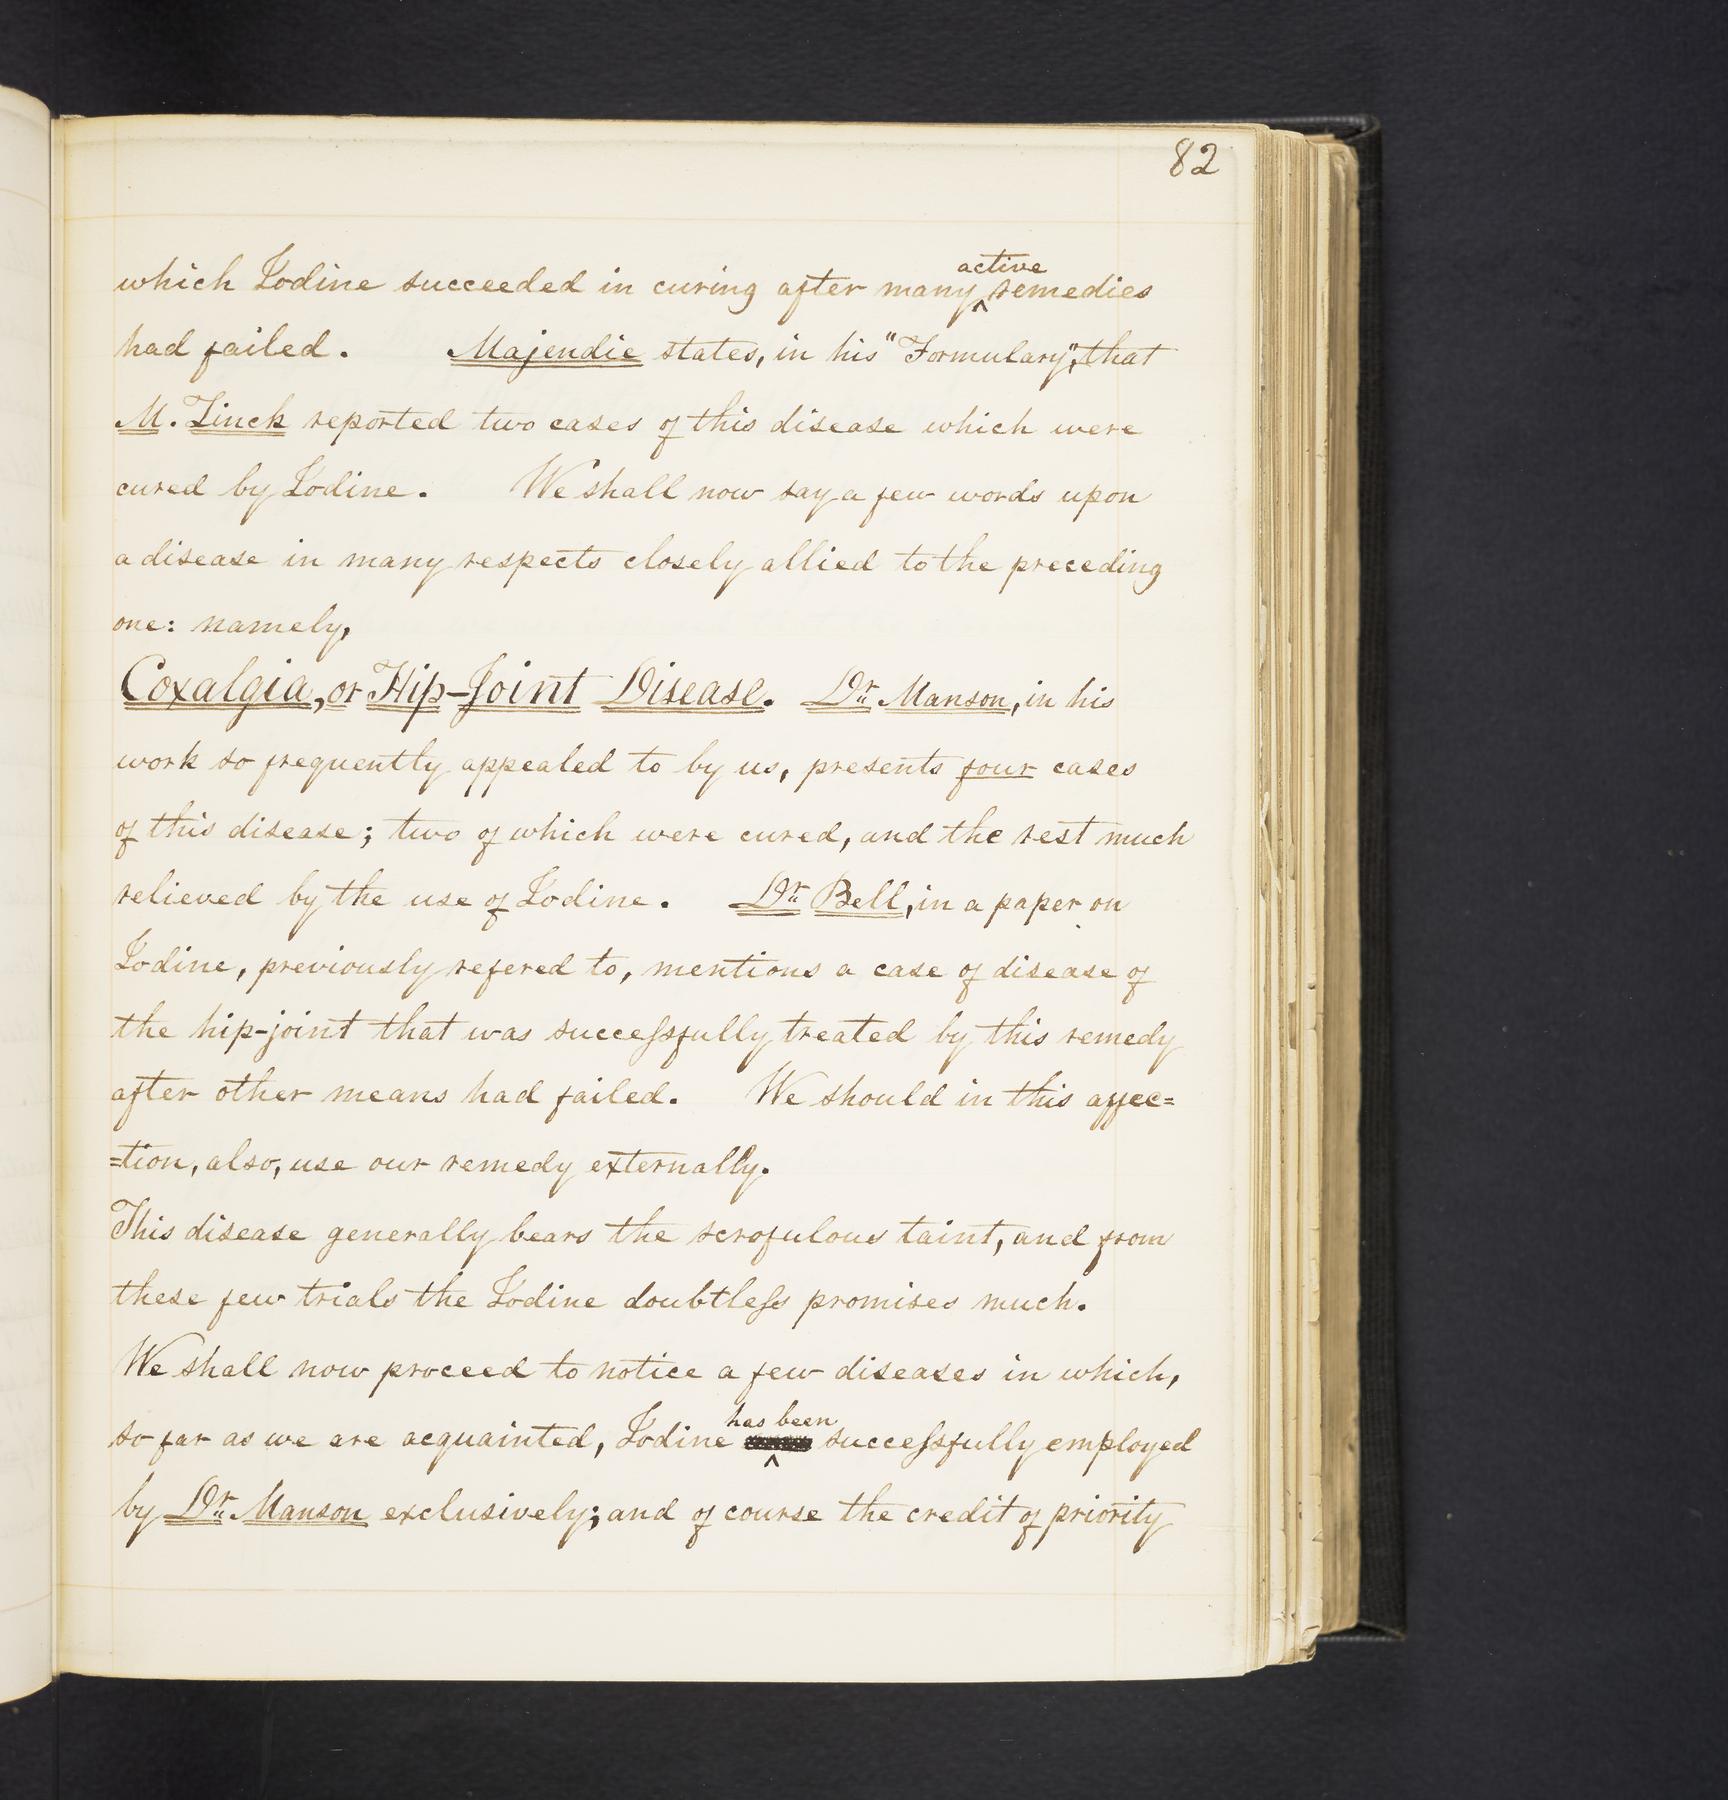 82
which Iodine succeeded in curing after many ^active remedies
had failed. Majendie states, in his "Formulary", that
M. Linck reported two cases of this disease which were
cured by Iodine. We shall now say a few words upon
a disease in many respects closely allied to the preceding
one: namely,
Coxalgia, or Hip-Joint Disease. Dr. Manson, in his
work so frequently appealed to by us, presents four cases
of this disease; two of which were cured, and the rest much
relieved by the use of Iodine. Dr. Bell, in a paper on
Iodine, previously refered to, mentions a case of disease of
the hip-joint that was succeſsfully treated by this remedy
after other means had failed. We should in this affec=
=tion, also, use our remedy externally.
This disease generally bears the scrofulous taint, and from
these few trials the Iodine doubtleſs promises much.
We shall now proceed to notice a few diseases in which,
so far as we are acquainted, Iodine ^has been succeſsfully employed
by Dr. Manson exclusively; and of course the credit of priority